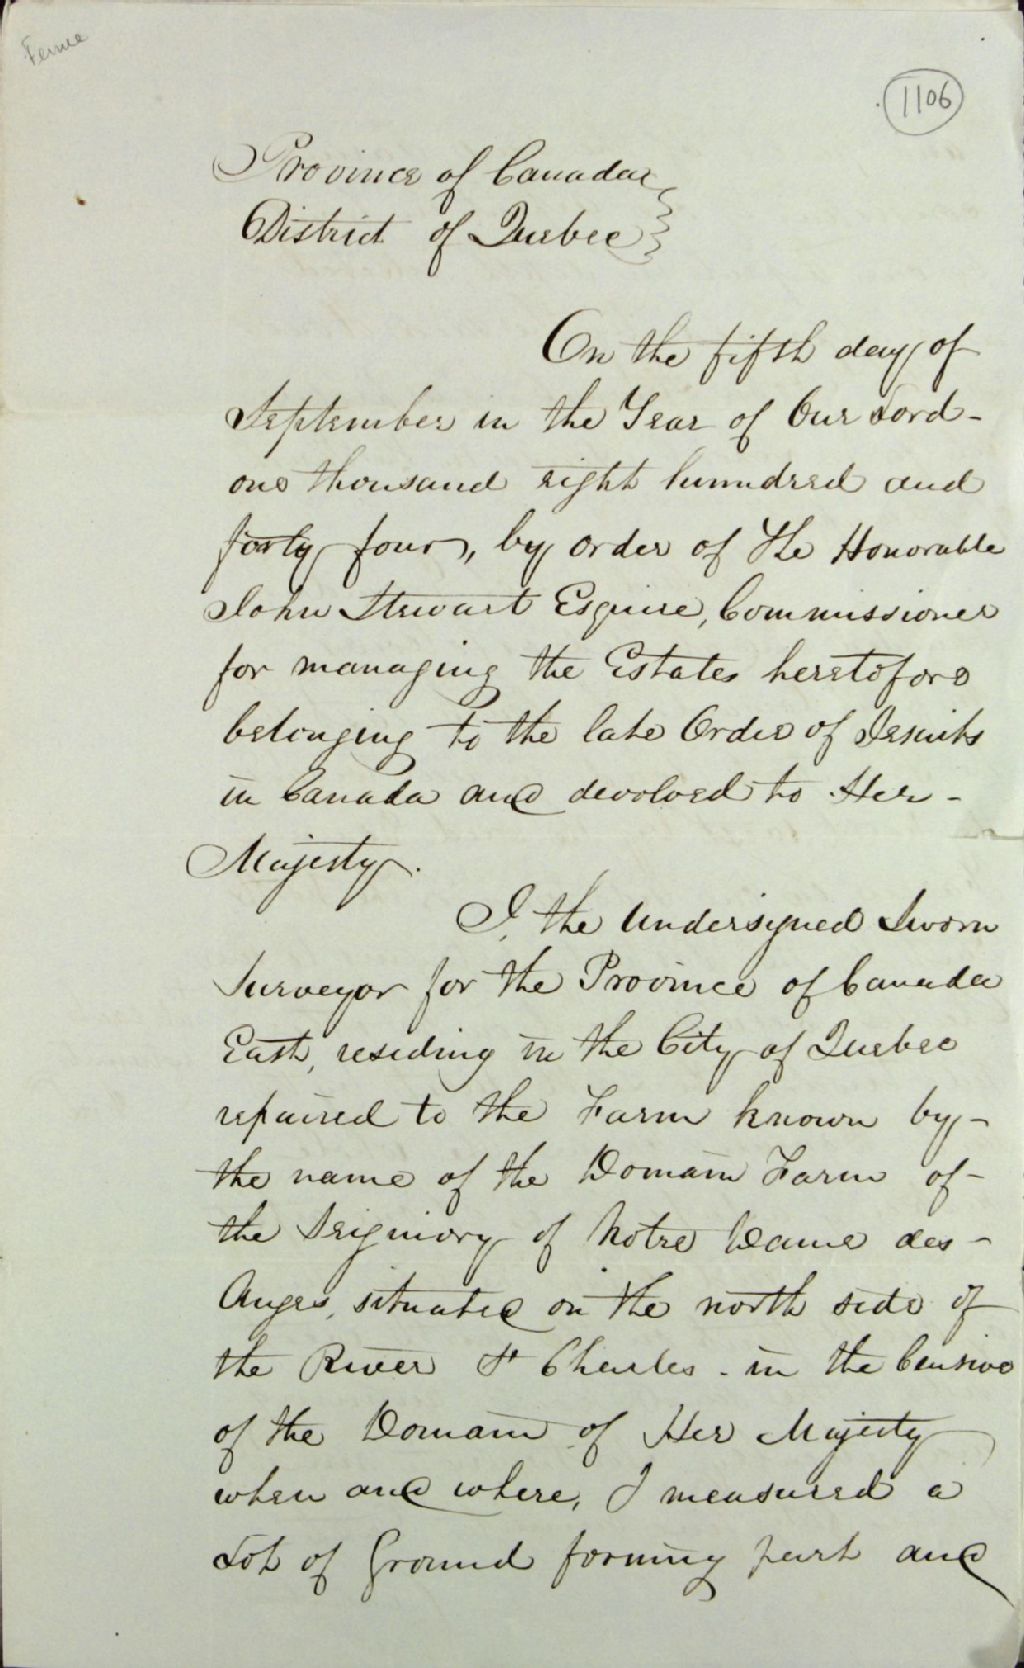 Ferme
1106
Province of Canada
District of Quebec
On the fifth day of
September in the Year of Our Lord -
one thousand eight hunndred and
forty four, by order of The Honorable
John Stewart Esquire, Commissioner
for managing the Estates heretofore
belonging to the late Order of Jesuits
in Canada and devolved to Her -
Majesty.
I, the Undersigned Sworn
Surveyor for the Province of Canada
East, residing in the City of Quebec
repaired to the Farm known by -
the name of the Domain Farm of -
the Seigniory of Notre Dame des -
Anges, situated on the north side of
the River St Charles - in the Censive
of the Domain of Her Majesty
when and where, I measured a
Lot of Ground forming part and